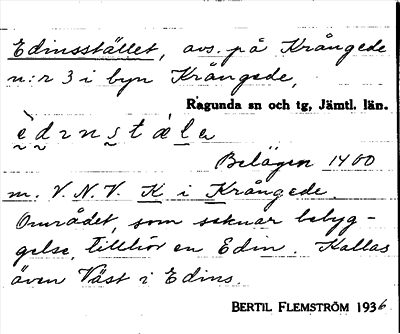 Edinsstället, avs. på Krångede
n:r 3 i byn Krångede,
Ragunda sn och tg, Jämtl. län.
è d ı n s t æ l e
Belägen 1400
m. V. N. V. K i Krångede.
Området, som saknar bebyg-
gelse, tillhör en Edin. Kallas
även Väst i Edins.
BERTIL FLEMSTRÖM 1936